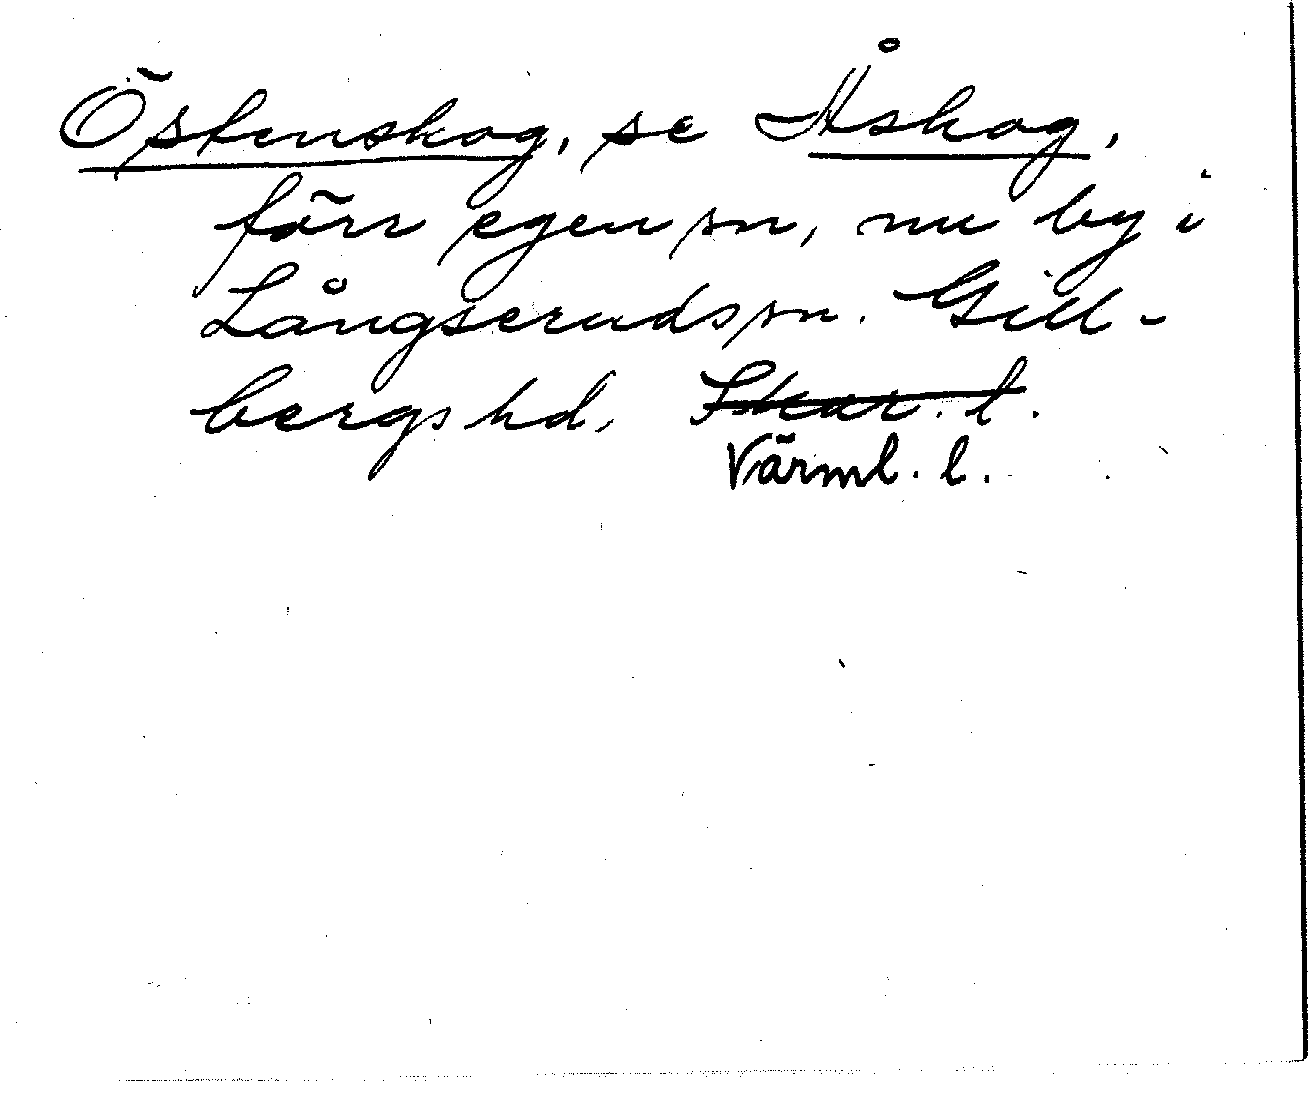 Östenskog, se Åskog,
förr egen sn, nu by i
Långseruds sn. Gill-
bergs hd, Skar. l.
Värml. l.